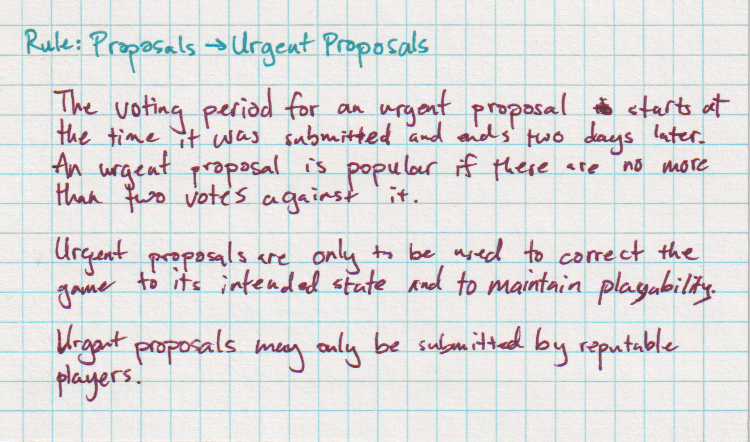 Rule: Proposals → Urgent Proposals
The voting period for an urgent proposal starts at
the time it was submitted and ends two days later.
An urgent proposal is popular if there are no more
than two votes against it.
Urgent proposals are only to be used to correct the
game to its intended state and to maintain playability.
Urgent proposals may only be submitted by reputable
players.